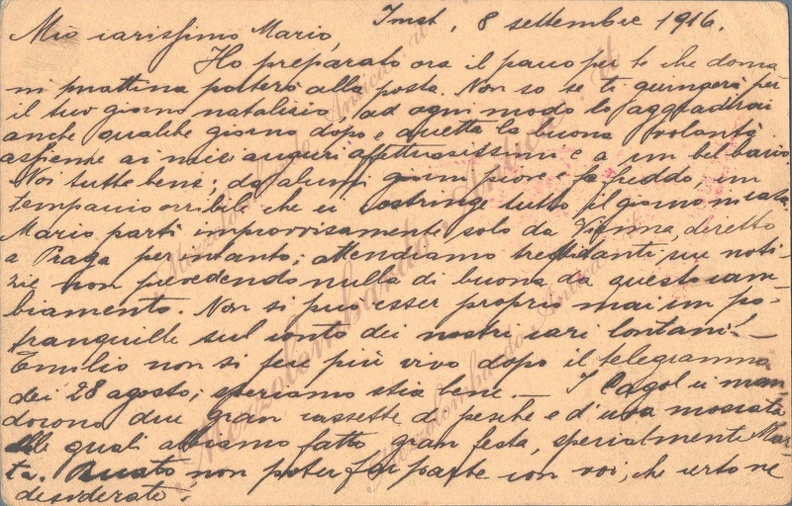 Imst, 8 settembre 1916.
Mio carissimo Mario,
Ho preparato ora il pacco per te che doma-
ni mattina porterò alla posta. Non so se ti giungerà per
il tuo giorno natalizio, ad ogni modo lo aggradirai
anche qualche giorno dopo e accetta la buona volontà
assieme ai miei auguri affettuosissimi e a un bel bacio.
Noi tutte bene; da alcuni giorni piove e fa freddo, un
tempaccio orribile che ci costringe tutto il giorno in casa.
Mario partì improvvisamente solo da Vienna, diretto
a Praga per intanto; attendiamo trepidanti sue noti-
zie non prevedendo nulla di buono da questo cam-
biamento. Non si può esser proprio mai un po'
tranquille sul conto dei nostri cari lontani!
Emilio non si fece più vivo dopo il telegramma
dei 28 agosto; speriamo stia bene. — I Cagol ci man-
darono due gran cassette di pesche e d'uva moscata
alle quali abbiamo fatto gran festa, specialmente Mar-
ta. non poter far parte con voi, che certo ne
desiderate!
Mezzolombardo